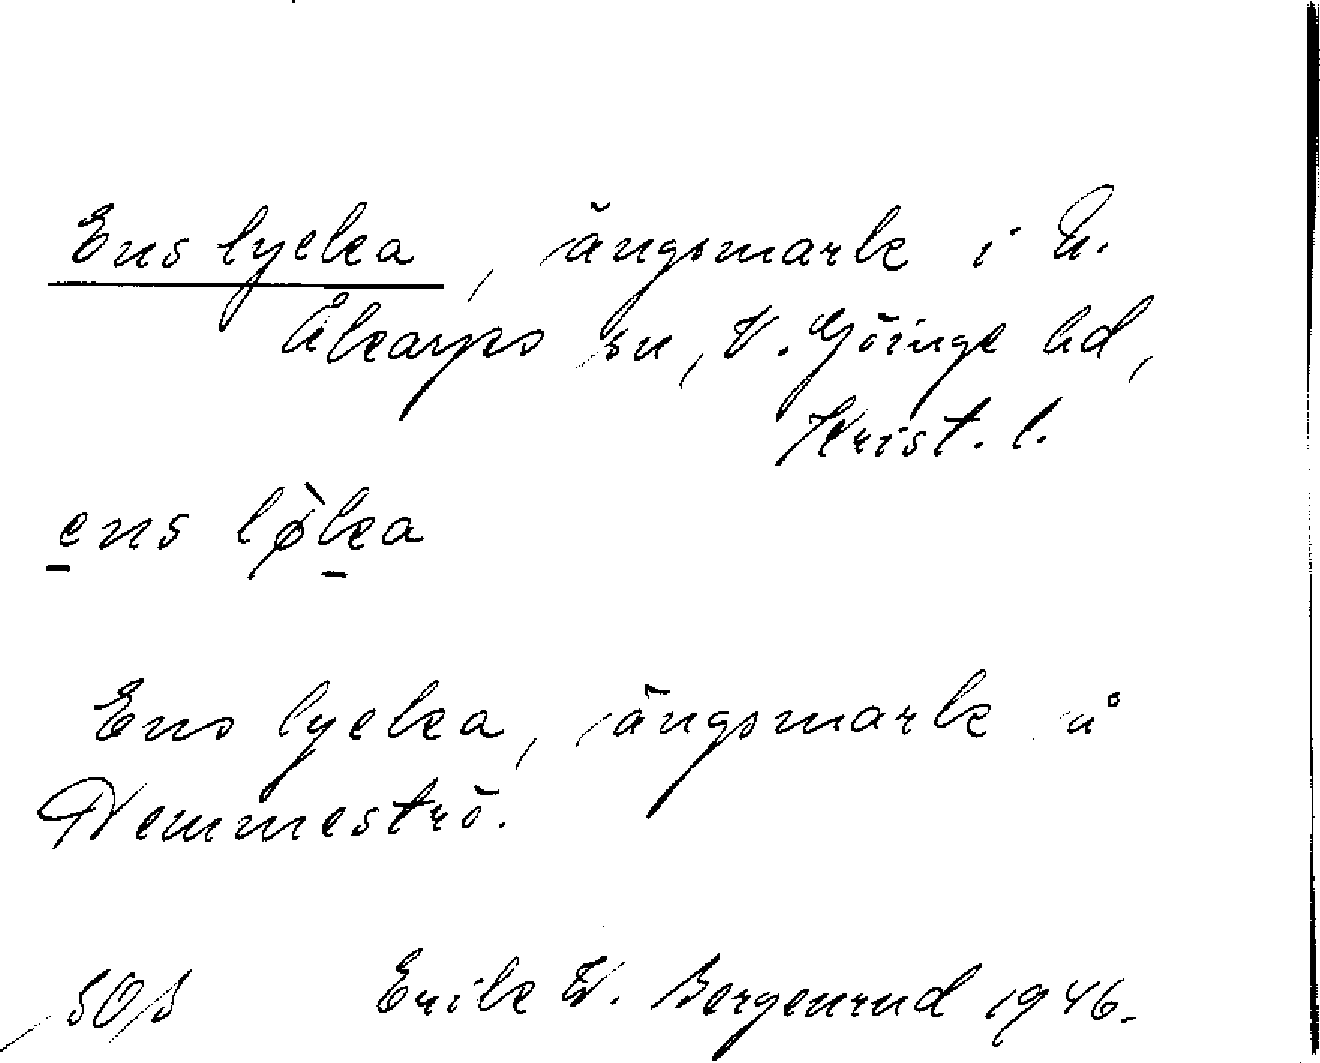 Ens lycka, ängsmark i N.
Åkarps sn, V. Göinge hd,
Krist. l.
ens lø̀ka
Ens lycka, ängsmark å
Hemmeströ.
Erik W. Bergenrud 1946.